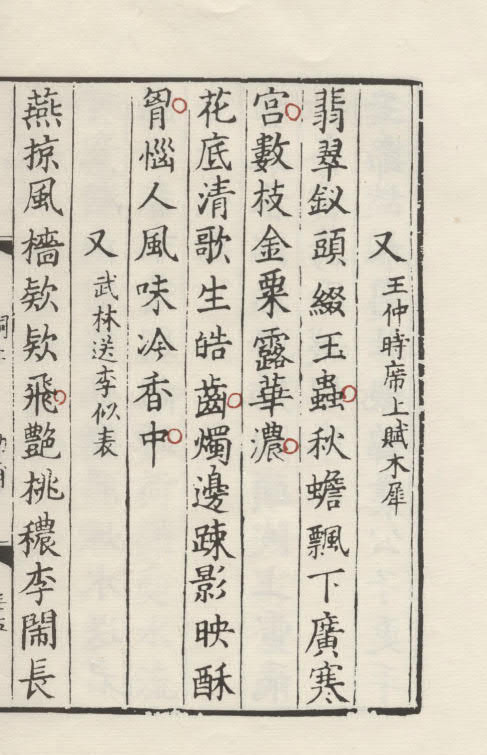 又 王仲時席上賦木犀
翡翠釵頭綴玉蟲秋蟾飄下廣寒
宮數枝金粟露華濃
花底清歌生皓齒燭邊疎影映酥
胷惱人風味冷香中
又 武林送李似表
燕掠風檣欵欵飛艷桃穠李閙長